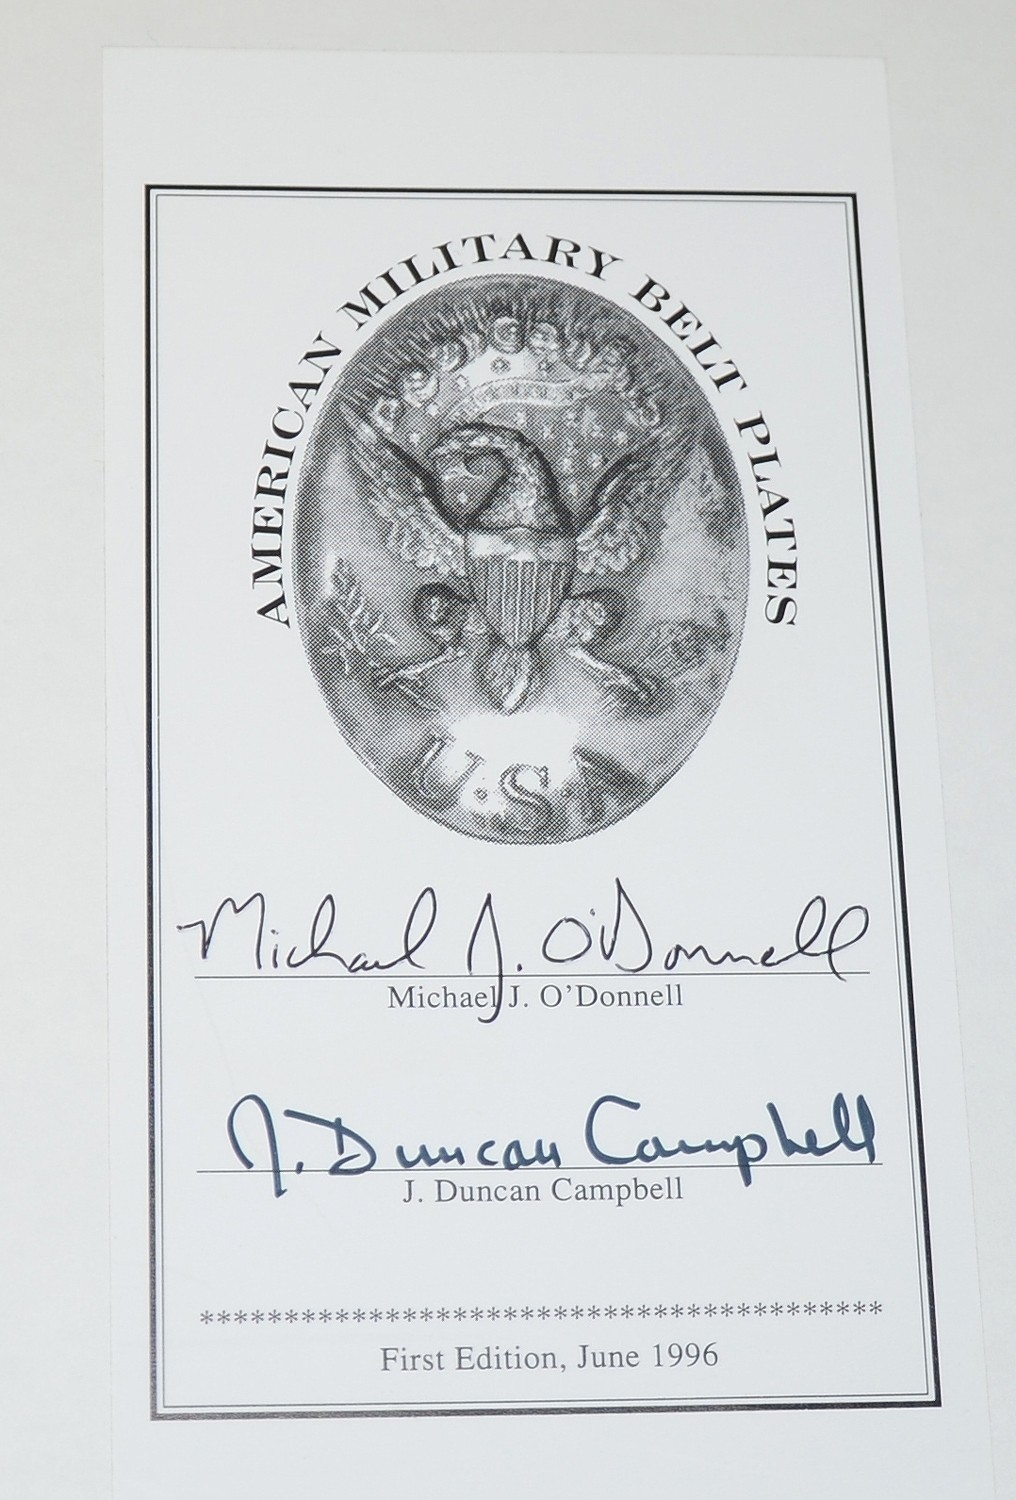 AMERICAN MILITARY BELT PLATES
U.S.A
Michael J. O'Donnell
Michael J. O'Donnell
J. Duncan Campbell
J. Duncan Campbell
****************************************
First Edition, June 1996